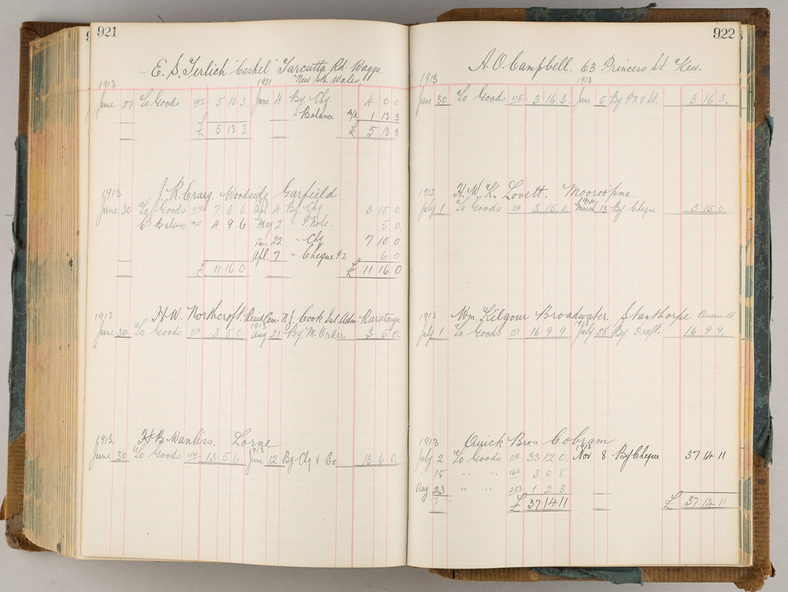 921
E. S. Terlich "Cashel" Tarcutta Rd. Wagga
New Sth Wales
1913
June 27 To Goods 5 13 3 June 4 By Chq 4 0 0
" Balance 1 13 3
£ 5 13 3 £ 5 13 3
1913 J. R. Craig. Woodside Garfield
June 30 To Goods 7 6 6 Apl 4 By Chq 3 15 0
4 9 6 May 2 " P Note 5 0
22 " Chq 7 10 0
Apl. 7 " Cheque 6 0
£ 11 16 0 £ 11 16 0
1913 H. W. Northcroft Cook Isl Adm. Raratonga
June 30 To Goods 3 5 0 1913 Aug 21 By M. Order 3 5 0
1913 H B Manliss. Lorne
June 30 To Goods 13 5 6 1913 June 12 By Chq & Ex 13 6 0
922
A. O. Campbell. 63 Princess St Kew.
1913
June 30 To Goods 115 3 16 3 1913 June 6 By 3 16 3
1913 H. W. K. Lovett. Mooroopna
July 1 To Goods 3 15 0 1914 March 13 By Cheque 3 15 0
1913 Wm Kilgour Broadwater Stanthorpe
July 1 To Goods 16 9 9 1913 July 25 By Draft 16 9 9
1913 Quick Bros Cobram
July 2 To Goods 33 12 0 1913 Nov 8 By Cheque 37 14 11
" 15 " " 166 3 0 8
Aug 23 " " 253 1 2 3
£ 37 14 11 £ 37 14 11